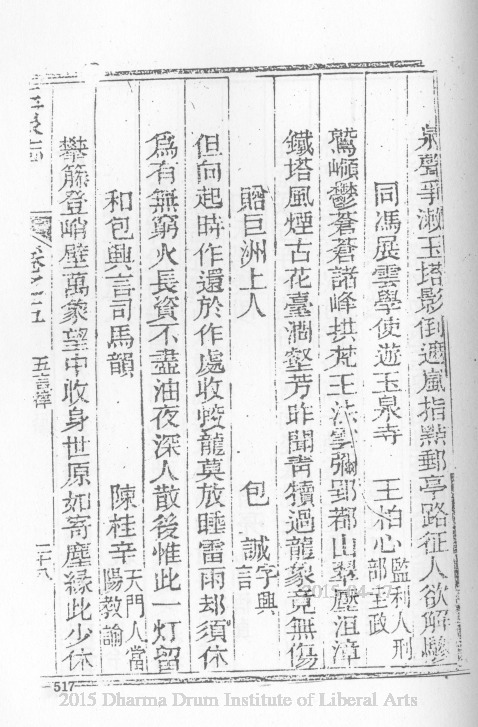 泉聲爭漱玉塔影倒連嵐指點郵亭路征人欲解驂
同馮展雲學使遊玉泉寺 王柏心監利人刑部主政
鷲嶺鬱蒼蒼諸峰拱梵王法雲彌郢都山翠壓沮漳
鐵塔風煙古花臺澗壑芳昨聞青犢過龍象竟無傷
贈巨洲上人 包誠字興言
但向起時作還於作處收蛟龍莫放睡雷雨却須休
為有無窮火長資不盡油夜深人散後惟此一灯留
和包興言司馬韻 陳桂辛天門人當陽教諭
攀籐登峭壁萬象望中收身世原如寄塵緣此少休
卷之五 五言律
517
2015 Dharma Drum Institute of Liberal Arts